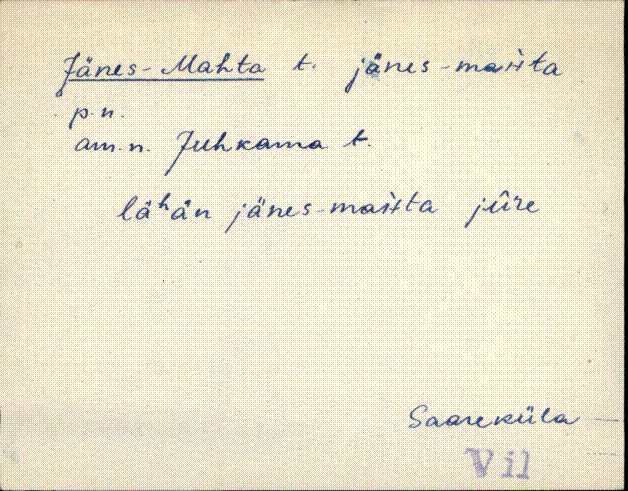 Jänes-Mahta t. jänes-mahta
p.n.
am.n. Juhkama t.
lähän jänes-mahta jüre
Saareküla
Vil